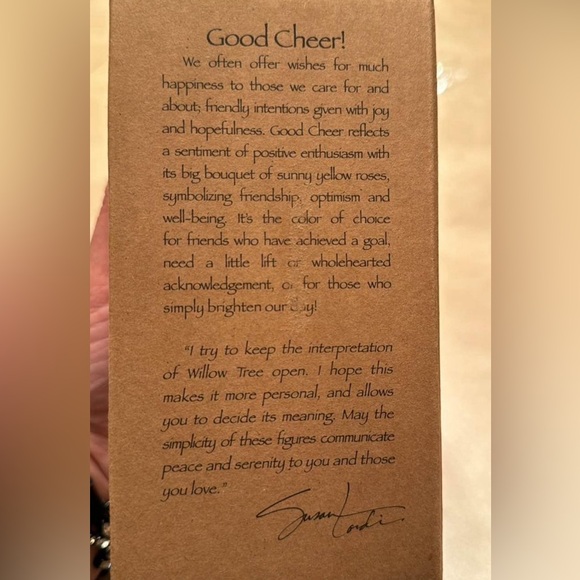 Good Cheer!
We often offer wishes for much
happiness to those we care for and
about; friendly intentions given with joy
and hopefulness. Good Cheer reflects
a sentiment of positive enthusiasm with
its big bouquet of sunny yellow roses,
symbolizing friendship, optimism and
well-being. It's the color of choice
for friends who have achieved a goal,
need a little lift or wholehearted
acknowledgement, or for those who
simply brighten our day!
"I try to keep the interpretation
of Willow Tree open. I hope this
makes it more personal, and allows
you to decide its meaning. May the
simplicity of these figures communicate
peace and serenity to you and those
you love."
Susan Lordi